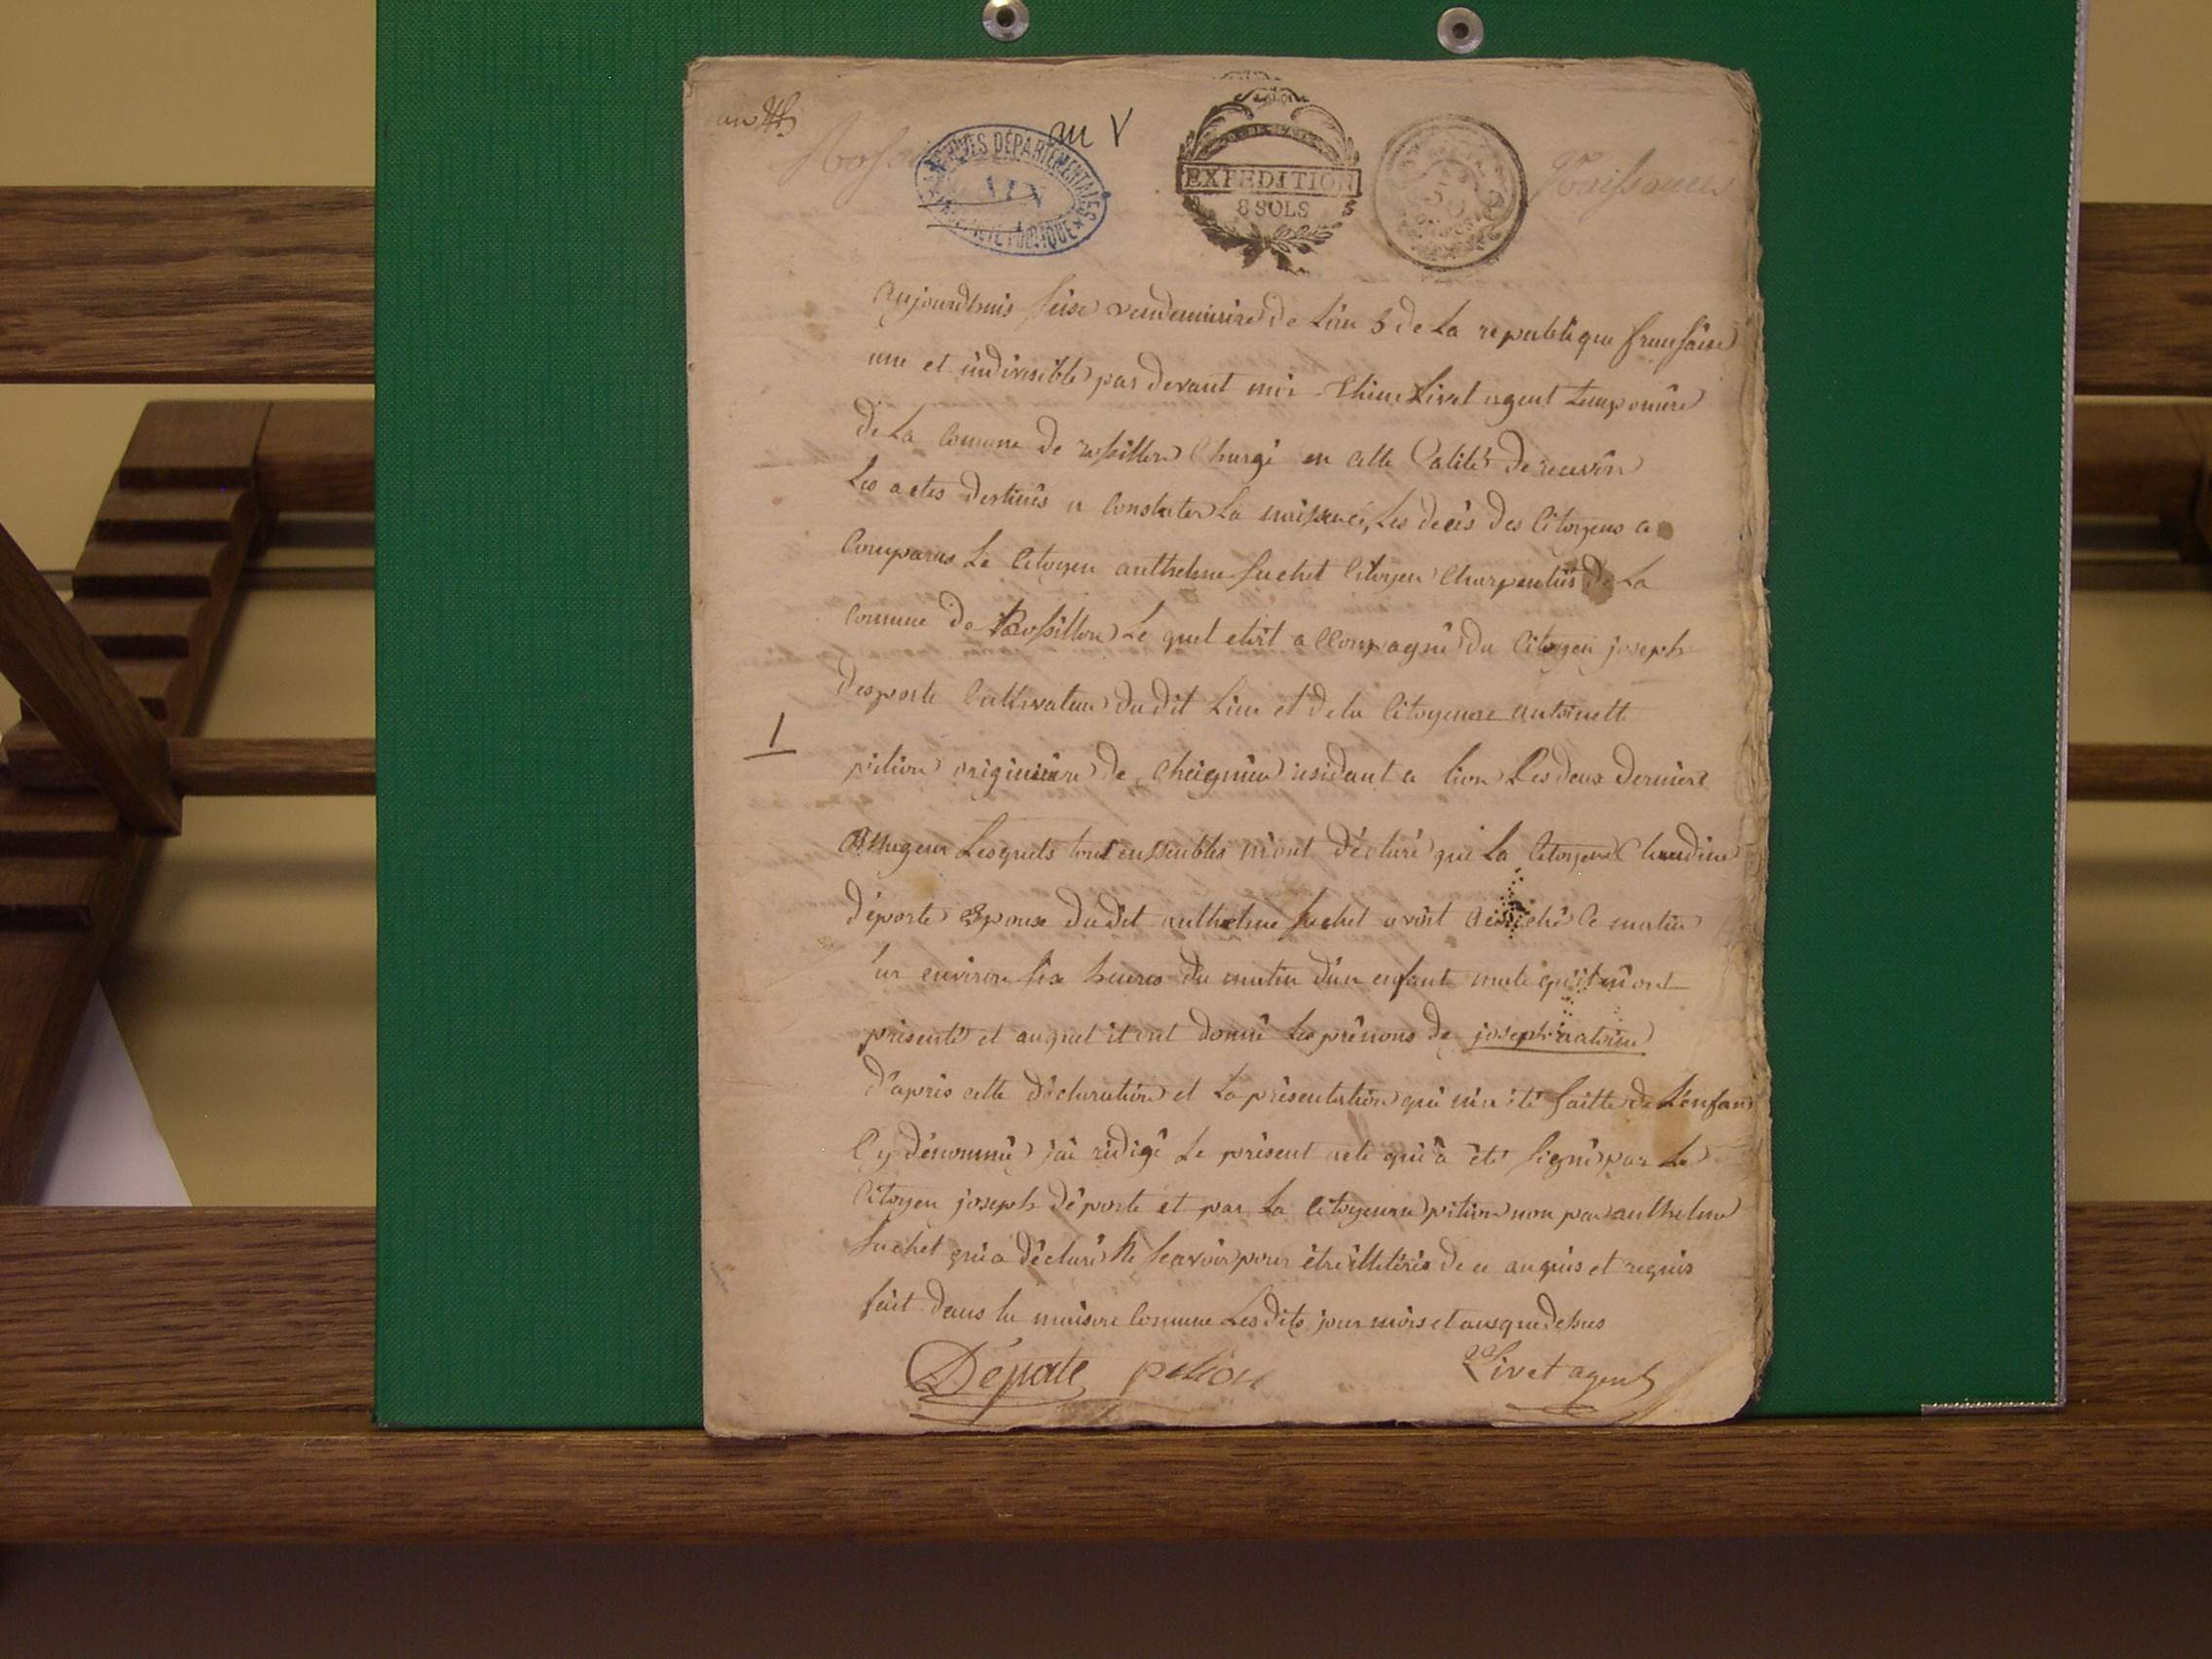 an V
ARCHIVES DÉPARTEMENTALES
AIN
PROPRIÉTÉ PUBLIQUE
EXPEDITION
8 SOLS
Naissances
aujourdhuis seise vendemiaire de Lan 5 de La republique fransaise
une et indivisible par devant moi Livet agent temporaire
de La Comune de rossillon Chargé en cette Calité de recevoir
Les actes destinés a Constater La naissance, Les decès des Citoyens a
Comparus Le Citoyen anthelme suchet Citoyen Charpentier de La
Comune de Rossillon Le quel etoit acCompagné du Citoyen joseph
desporte Cultivateur du dit Lieu et de la Citoyenne antoinett
pition originaire de Cheignieu residant a lion Les deux derniers
majeur Lesquels tout enssembles m'ont déclaré que La Citoyenne Claudine
déporte Epouse du dit anthelme suchet avoit acouché Ce matin
sur environ six heures du matin d'un enfant male qu'il m'ont
présenté et auquel il ont donné Les prénons de joseph antoine
d'aprés cette déclaration et La présentation qui m'a été faitte de L'enfan
Cy dénommé j'ai rédigé Le présent acte qui a été signé par Le
Citoyen joseph déporte et par La Citoyenne pition non par anthelme
suchet qui a déclaré Ne scavoir pour être illétéré de ce anquis et requis
fait dans la maison Comune Les dits jour mois et ans que dessus
Déporte pition Livet agent
1